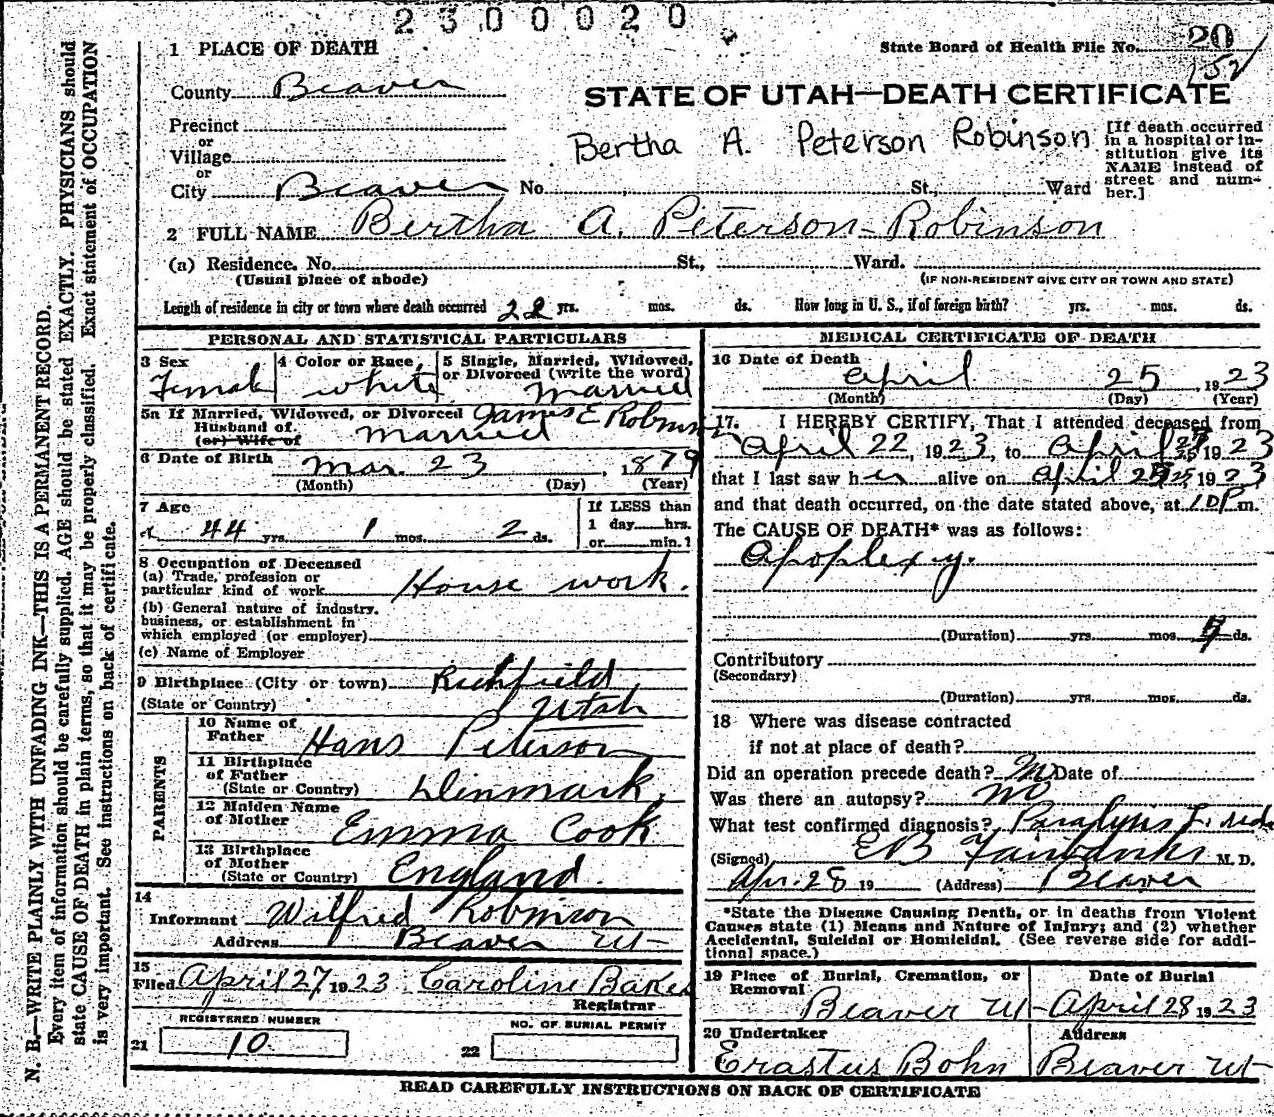 2300020
1 PLACE OF DEATH
State Board of Health File No. 20
152
County Beaver
STATE OF UTAH—DEATH CERTIFICATE
Precinct
or
Village
or
City Beaver No. St., Ward
Bertha A. Peterson Robinson
[If death occurred
in a hospital or in-
stitution give its
NAME instead of
street and num-
ber.]
2 FULL NAME Bertha A. Peterson-Robinson
(a) Residence. No. St., Ward.
(Usual place of abode) (IF NON-RESIDENT GIVE CITY OR TOWN AND STATE)
Length of residence in city or town where death occurred 22 yrs. mos. ds. How long in U. S., if of foreign birth? yrs. mos. ds.
PERSONAL AND STATISTICAL PARTICULARS
3 Sex
Female
4 Color or Race
white
5 Single, Married, Widowed,
or Divorced (write the word)
Married
5a If Married, Widowed, or Divorced James E Robinson
Husband of
(or) Wife of Married
6 Date of Birth Mar. 23, 1879
(Month) (Day) (Year)
7 Age
44 yrs. 1 mos. 2 ds.
If LESS than
1 day hrs.
or min.?
8 Occupation of Deceased
(a) Trade, profession or
particular kind of work House work.
(b) General nature of industry,
business, or establishment in
which employed (or employer)
(c) Name of Employer
9 Birthplace (City or town) Richfield
(State or Country) Utah
PARENTS
10 Name of
Father Hans Peterson
11 Birthplace
of Father
(State or Country) Dinmark.
12 Maiden Name
of Mother Emma Cook
13 Birthplace
of Mother
(State or Country) England.
14
Informant Wilfred Robinson
Address Beaver Ut
15
Filed April 27 1923 Caroline
Registrar
REGISTERED NUMBER
21 10
NO. OF BURIAL PERMIT
22
MEDICAL CERTIFICATE OF DEATH
16 Date of Death
April 25, 1923
(Month) (Day) (Year)
17. I HEREBY CERTIFY, That I attended deceased from
April 22, 1923, to April 25 1923
that I last saw her alive on April 25 1923
and that death occurred, on the date stated above, at 10P m.
The CAUSE OF DEATH* was as follows:
Apoplexy.
(Duration) yrs. mos. ds.
Contributory
(Secondary)
(Duration) yrs. mos. ds.
18 Where was disease contracted
if not at place of death?
Did an operation precede death? No Date of
Was there an autopsy? No
What test confirmed diagnosis? Paralysis
(Signed) EB Fairbanks M. D.
Apr. 28 19 (Address) Beaver
*State the Disease Causing Death, or in deaths from Violent
Causes state (1) Means and Nature of Injury; and (2) whether
Accidental, Suicidal or Homicidal. (See reverse side for addi-
tional space.)
19 Place of Burial, Cremation, or
Removal
Beaver Ut
Date of Burial
April 28 1923
20 Undertaker
Erastus Bohn
Address
Beaver Ut
READ CAREFULLY INSTRUCTIONS ON BACK OF CERTIFICATE
N. B.—WRITE PLAINLY WITH UNFADING INK—THIS IS A PERMANENT RECORD.
Every item of information should be carefully supplied. AGE should be stated EXACTLY. PHYSICIANS should
state CAUSE OF DEATH in plain terms, so that it may be properly classified. Exact statement of OCCUPATION
is very important. See instructions on back of certificate.